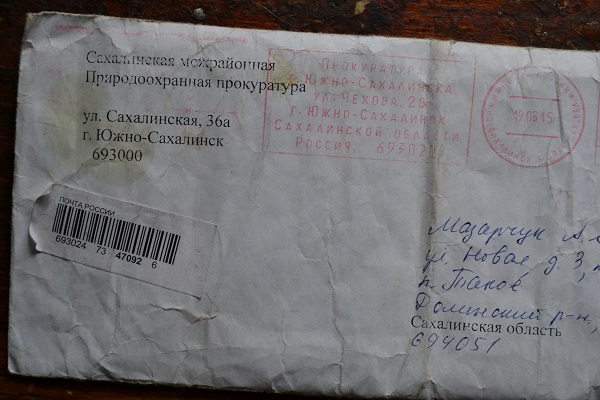 Сахалинская межрайонная
Природоохранная прокуратура
ул. Сахалинская, 36а
г. Южно-Сахалинск
693000
ПРОКУРАТУРА
Г. ЮЖНО-САХАЛИНСКА
УЛ. ЧЕХОВА, 26
Г. ЮЖНО-САХАЛИНСК
САХАЛИНСКОЙ ОБЛАСТИ
РОССИЯ, 69302
19.08.15
ПОЧТА РОССИИ
693024 73 47092 6
Мазарчук А.
ул. Новая д. 3,
п. Такое
Долинский р-н,
Сахалинская область
694051